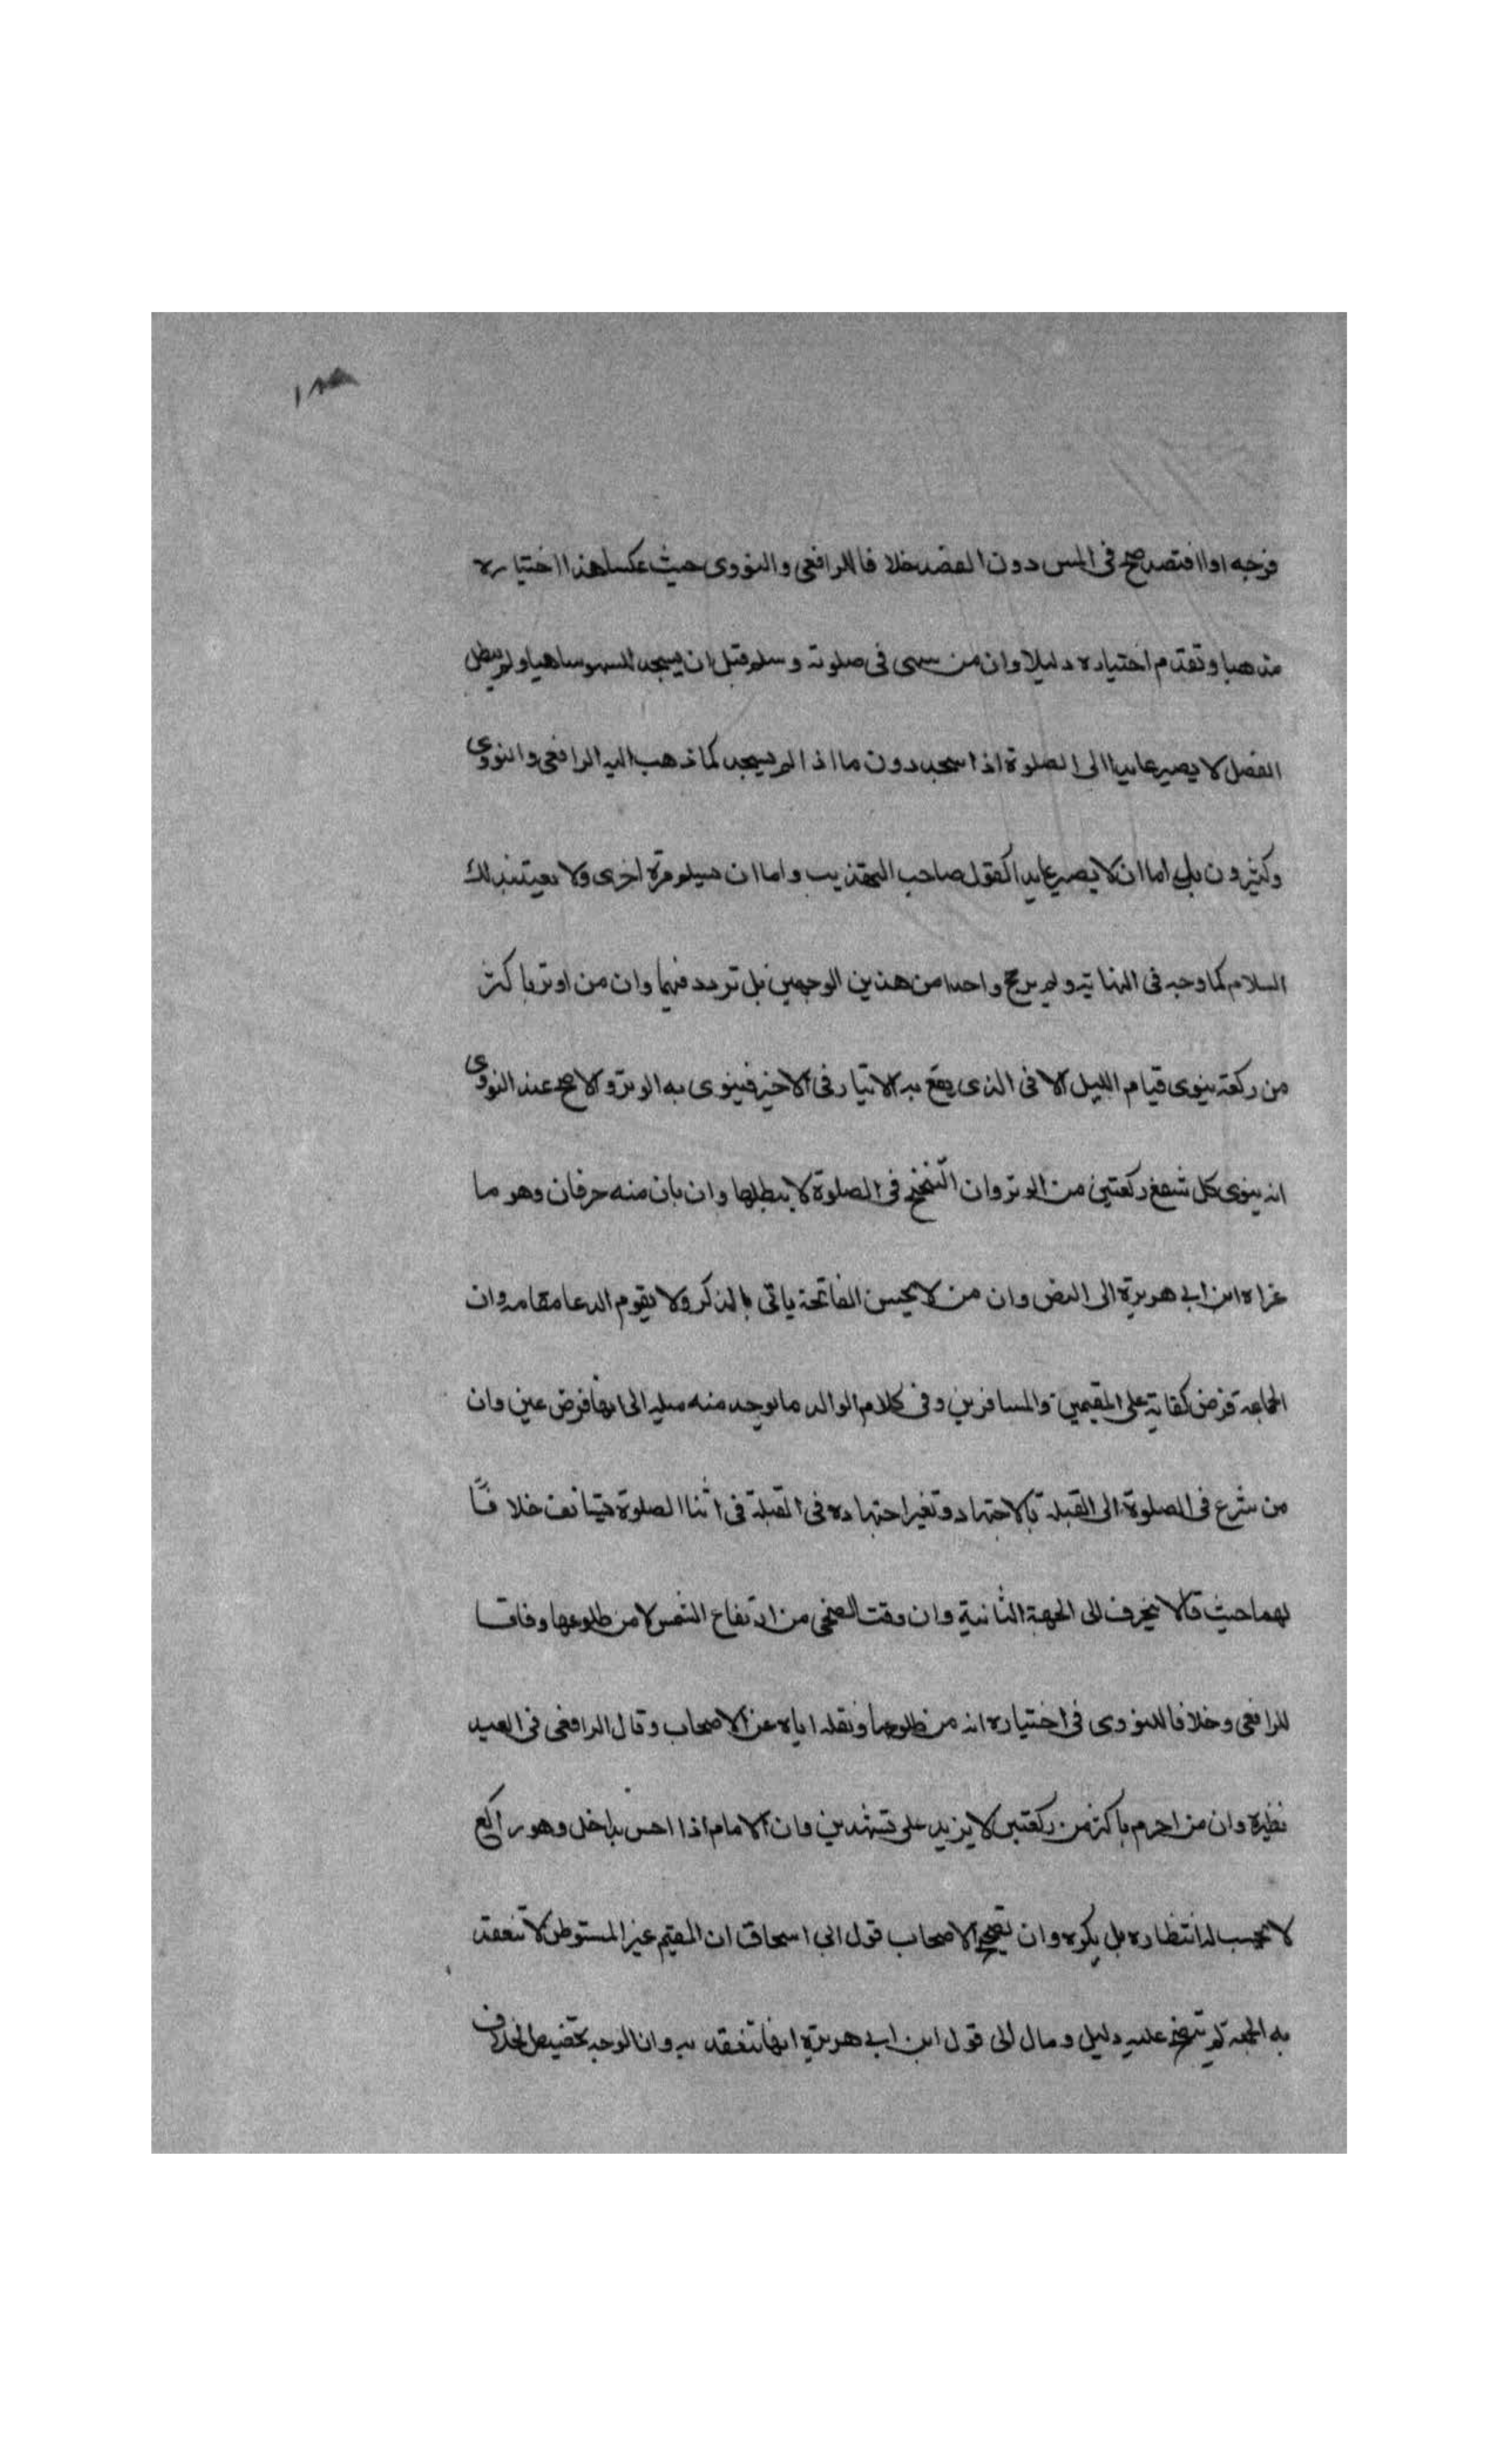 فرجه او افتصد صح فى المس دون الفصد خلافا للرافعى والنووى حيث عكسا هذا اختياره
مذهبا وتقدم اختياره دليلا وان من سهى فى صلوته وسلم قبل ان يسجد للسهو ساهيا ولم يطل
الفصل لا يصير عايدا الى الصلوة اذا سجد دون ما اذا لم يسجد كما ذهب اليه الرافعى والنووى
وكثيرون بل اما ان لا يصير عايدا كقول صاحب التهذيب واما ان يسلم مرة اخرى ولا يعتد بذلك
السلام كما وجه فى النهاية ولم يرجح واحدا من هذين الوجهين بل تردد فيهما وان من اوتر باكثر
من ركعة ينوى قيام الليل الا فى الذى يقع به الايتار فى الاخير فينوى به الوتر والاصح عند النووى
انه ينوى بكل شفع ركعتين من الوتر وان التنحنح فى الصلوة لا يبطلها وان بان منه حرفان وهو ما
عزاه ابن ابى هريرة الى النص وان من لا يحسن الفاتحة ياتى بالذكر ولا يقوم الدعا مقامه وان
الجماعة فرض كفاية على المقيمين والمسافرين وفى كلام الوالد ما يوجد منه ميله الى انها فرض عين وان
من شرع فى الصلوة الى القبلة بالاجتهاد وتغير اجتهاده فى القبلة فى اثنا الصلوة يستانف خلافًا
لهما حيث قالا ينحرف الى الجهة الثانية وان وقت الضحى من ارتفاع الشمس لا من طلوعها وفاقا
للرافعى وخلافا للنووى فى اختياره انه من طلوعها ونقله اياه عن الاصحاب وقال الرافعى فى العيد
نظيره وان من احرم باكثر من ركعتين لا يزيد على تشهدين وان الامام اذا احس بداخل وهو راكع
لا يحب له انتظاره بل يكره وان تصحيح الاصحاب قول ابى اسحاق ان المقيم غير المستوطن لا تنعقد
به الجمعة لم يتضح عليه دليل ومال الى قول ابن ابى هريرة انها تنعقد به وان الوجه تخصيص الخلاف